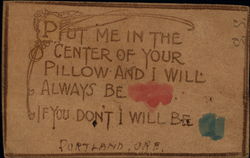 PUT ME IN THE
CENTER OF YOUR
PILLOW AND I WILL
ALWAYS BE
IF YOU DON'T I WILL BE
PORTLAND, ORE.